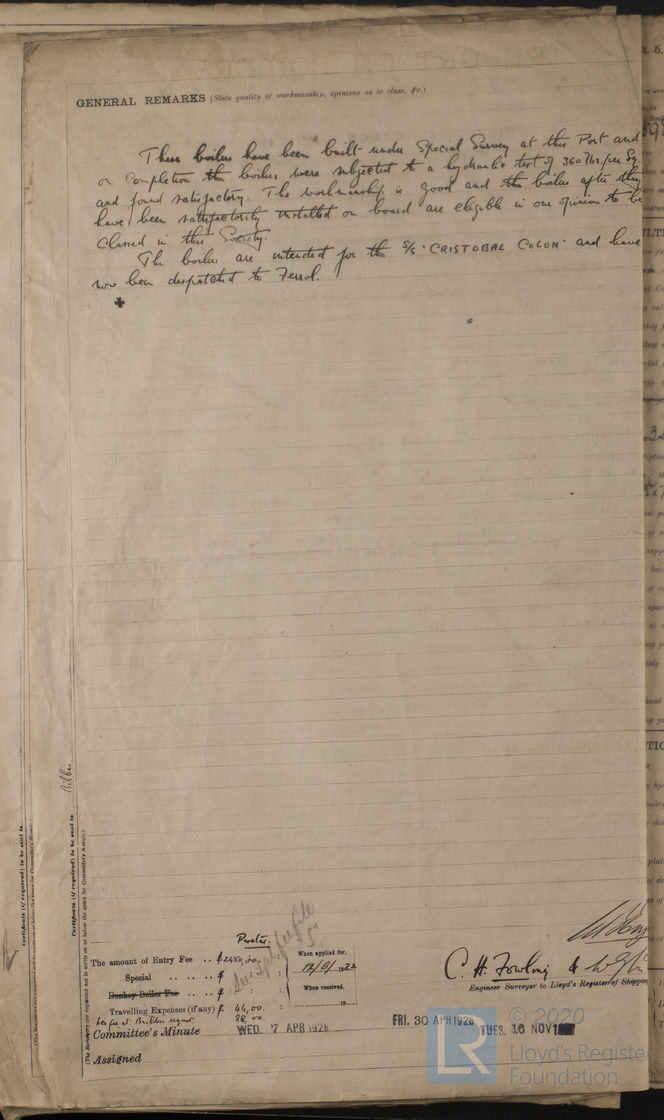 GENERAL REMARKS (State quality of workmanship, opinions as to class, &c.)
These boilers have been built under Special Survey at this Port and
on completion the boilers were subjected to a hydraulic test of 360 lbs. per Sq.
and found satisfactory. The workmanship is good and the boilers after they
have been satisfactorily installed on board are eligible in our opinion to be
Classed in this Society.
The boilers are intended for the S/S "CRISTOBAL COLON" and have
now been despatched to Ferrol.
Certificate (if required) to be sent to
Bilbao.
Certificate (if required) to be sent to
(The Surveyors are requested not to write on or below the space for Committee's Minute.)
Pesetas.
The amount of Entry Fee .. £ 2450,00.
Special .. .. £
Donkey Boiler Fee .. .. £
Travelling Expenses (if any) £ 44,00.
28 00.
When applied for,
19 22
When received,
19
See Spl fee file
C. H. Fowling &
Engineer Surveyor to Lloyd's Register of Shipping
Committee's Minute
WED. 7 APR 1926
FRI. 30 APR 1926
TUES. 16 NOV
Assigned
LR
© 2020
Lloyd's Registe
Foundation